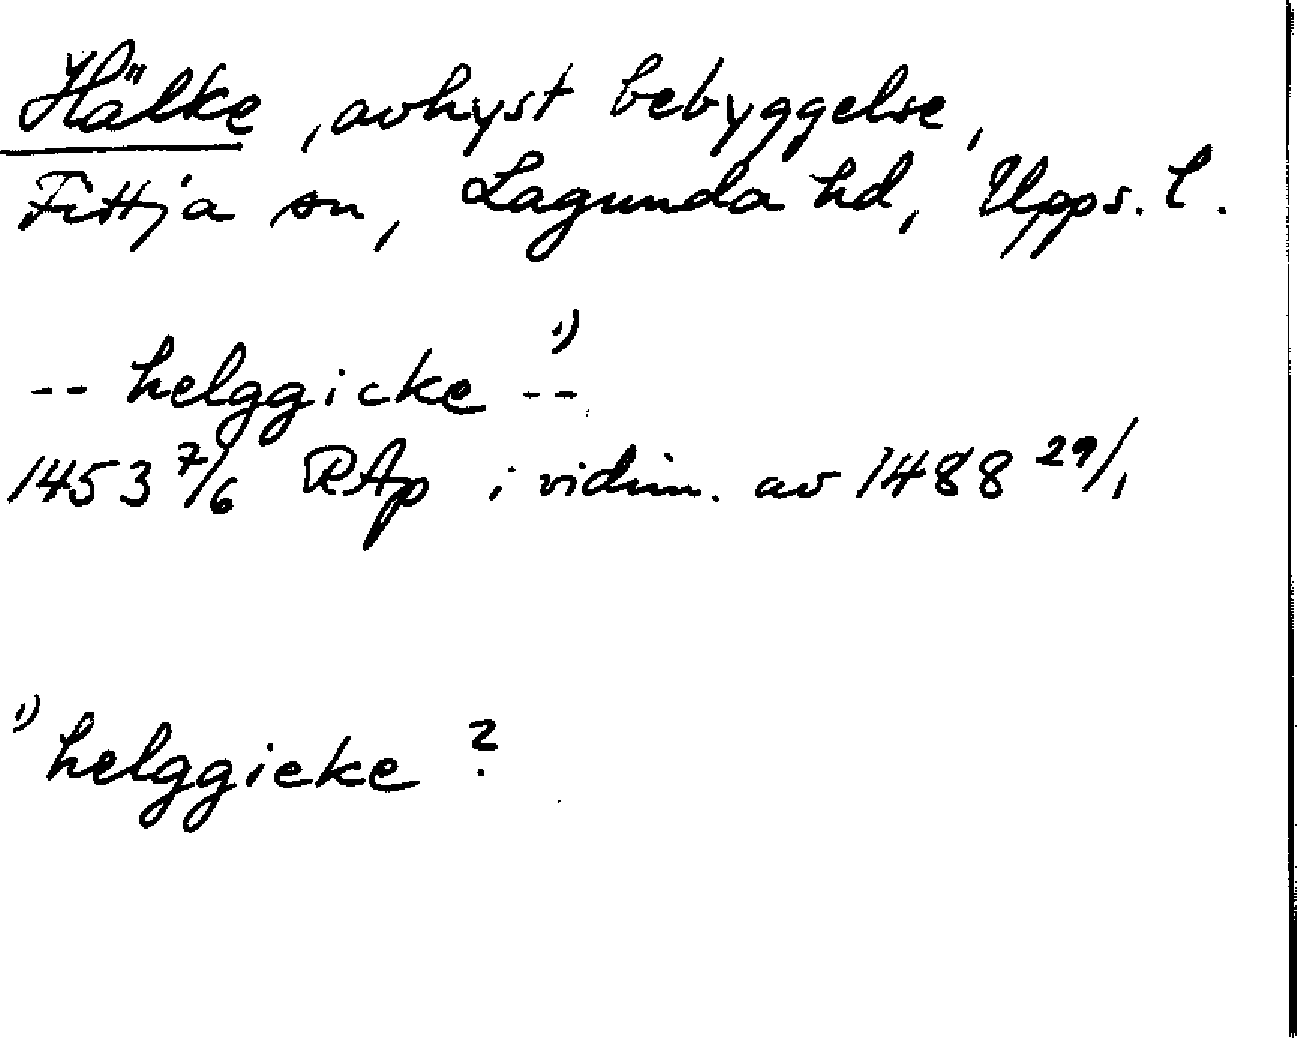 Hälke, avhyst bebyggelse,
Fittja sn, Lagunda hd, Upps. l.
-- helggicke -- 1)
1453 7/6 RAp i vidim. av 1488 29/1
1) helggieke ?